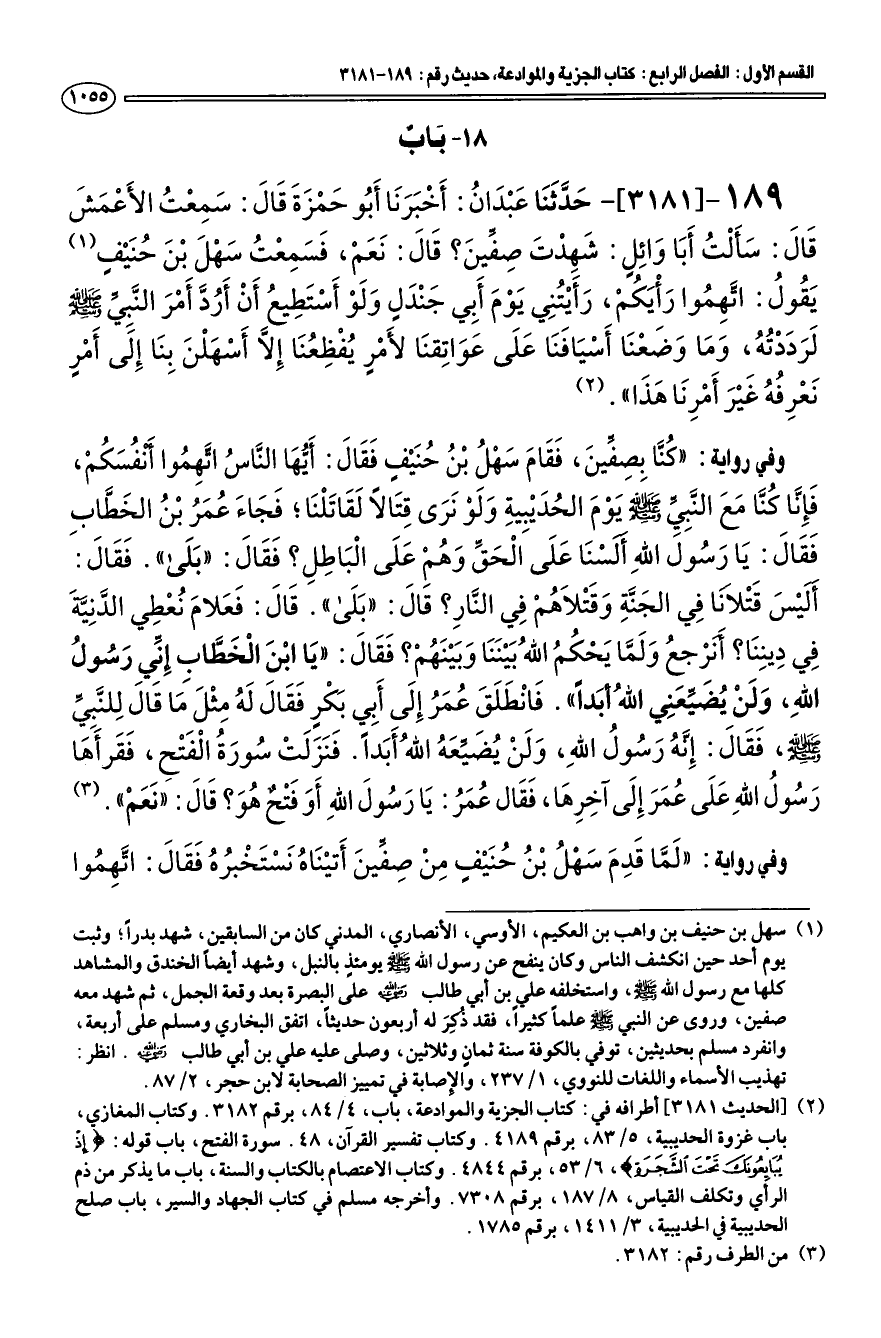 القسم الأول: الفصل الرابع: كتاب الجزية والموادعة، حديث رقم: ١٨٩-٣١٨١
١٠٥٥
١٨- بَابٌ
١٨٩-[٣١٨١]- حَدَّثَنَا عَبْدَانُ: أَخْبَرَنَا أَبُو حَمْزَةَ قَالَ: سَمِعْتُ الأَعْمَشَ
قَالَ: سَأَلْتُ أَبَا وَائِلٍ: شَهِدْتَ صِفِّينَ؟ قَالَ: نَعَمْ، فَسَمِعْتُ سَهْلَ بْنَ حُنَيْفٍ(١)
يَقُولُ: اتَّهِمُوا رَأْيَكُمْ، رَأَيْتُنِي يَوْمَ أَبِي جَنْدَلٍ وَلَوْ أَسْتَطِيعُ أَنْ أَرُدَّ أَمْرَ النَّبِيِّ ﷺ
لَرَدَدْتُهُ، وَمَا وَضَعْنَا أَسْيَافَنَا عَلَى عَوَاتِقِنَا لأَمْرٍ يُفْظِعُنَا إِلاَّ أَسْهَلْنَ بِنَا إِلَى أَمْرٍ
نَعْرِفُهُ غَيْرَ أَمْرِنَا هَذَا». (٢)
وفي رواية: «كُنَّا بِصِفِّينَ، فَقَامَ سَهْلُ بْنُ حُنَيْفٍ فَقَالَ: أَيُّهَا النَّاسُ اتَّهِمُوا أَنْفُسَكُمْ،
فَإِنَّا كُنَّا مَعَ النَّبِيِّ ﷺ يَوْمَ الحُدَيْبِيةِ وَلَوْ نَرَى قِتَالاً لَقَاتَلْنَا؛ فَجَاءَ عُمَرُ بْنُ الخَطَّابِ
فَقَالَ: يَا رَسُولَ اللهِ أَلَسْنَا عَلَى الْحَقِّ وَهُمْ عَلَى الْبَاطِلِ؟ فَقَالَ: «بَلَىٰ». فَقَالَ:
أَلَيْسَ قَتْلاَنَا فِي الجَنَّةِ وَقَتْلاَهُمْ فِي النَّارِ؟ قَالَ: «بَلَىٰ». قَالَ: فَعَلامَ نُعْطِي الدَّنِيَّةَ
فِي دِينِنَا؟ أَنَرْجِعُ وَلَمَّا يَحْكُمُ اللهُ بَيْنَنَا وَبَيْنَهُمْ؟ فَقَالَ: «يَا ابْنَ الْخَطَّابِ إِنِّي رَسُولُ
اللهِ، وَلَنْ يُضَيِّعَنِي اللهُ أَبَداً». فَانْطَلَقَ عُمَرُ إِلَى أَبِي بَكْرٍ فَقَالَ لَهُ مِثْلَ مَا قَالَ لِلنَّبِيِّ
ﷺ، فَقَالَ: إِنَّهُ رَسُولُ اللهِ، وَلَنْ يُضَيِّعَهُ اللهُ أَبَداً. فَنَزَلَتْ سُورَةُ الْفَتْحِ، فَقَرأَهَا
رَسُولُ اللهِ عَلَى عُمَرَ إِلَى آخِرِهَا، فَقَال عُمَرُ: يَا رَسُولَ اللهِ أَوَ فَتْحٌ هُوَ؟ قَالَ: «نَعَمْ». (٣)
وفي رواية: «لَمَّا قَدِمَ سَهْلُ بْنُ حُنَيْفٍ مِنْ صِفِّينَ أَتَيْنَاهُ نَسْتَخْبِرُهُ فَقَالَ: اتَّهِمُوا
(١) سهل بن حنيف بن واهب بن العكيم، الأوسي، الأنصاري، المدني كان من السابقين، شهد بدراً؛ وثبت
يوم أحد حين انكشف الناس وكان ينفح عن رسول الله ﷺ يومئذٍ بالنبل، وشهد أيضاً الخندق والمشاهد
كلها مع رسول الله ﷺ، واستخلفه علي بن أبي طالب رضي الله عنه على البصرة بعد وقعة الجمل، ثم شهد معه
صفين، وروى عن النبي ﷺ علماً كثيراً، فقد ذُكِرَ له أربعون حديثاً، اتفق البخاري ومسلم على أربعة،
وانفرد مسلم بحديثين، توفي بالكوفة سنة ثمانٍ وثلاثين، وصلى عليه علي بن أبي طالب رضي الله عنه. انظر:
تهذيب الأسماء واللغات للنووي، ١/ ٢٣٧، والإصابة في تمييز الصحابة لابن حجر، ٢/ ٨٧.
(٢) [الحديث ٣١٨١] أطرافه في: كتاب الجزية والموادعة، باب، ٤/ ٨٤، برقم ٣١٨٢. وكتاب المغازي،
باب غزوة الحديبية، ٥/ ٨٣، برقم ٤١٨٩. وكتاب تفسير القرآن، ٤٨. سورة الفتح، باب قوله: ﴿إِذْ
يُبَايِعُونَكَ تَحْتَ الشَّجَرَةِ﴾، ٦/ ٥٣، برقم ٤٨٤٤. وكتاب الاعتصام بالكتاب والسنة، باب ما يذكر من ذم
الرأي وتكلف القياس، ٨/ ١٨٧، برقم ٧٣٠٨. وأخرجه مسلم في كتاب الجهاد والسير، باب صلح
الحديبية في الحديبية، ٣/ ١٤١١، برقم ١٧٨٥.
(٣) من الطرف رقم: ٣١٨٢.